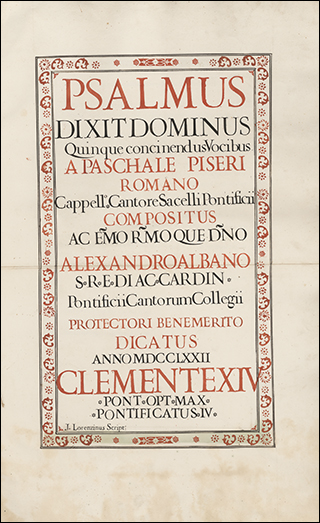 PSALMUS
DIXIT DOMINUS
Quinque concinendus Vocibus
A PASCHALE PISERI
ROMANO
Cappell., Cantore Sacelli Pontificii
COMPOSITUS
AC EM̃O RM̃O QUE DÑO
ALEXANDRO ALBANO
S·R·E·DIAC·CARDIN·
Pontificii Cantorum Collegii
PROTECTORI BENEMERITO
DICATUS
ANNO MDCCLXXII
CLEMENTE XIV
·PONT·OPT·MAX·
·PONTIFICATUS·IV·
J. Lorenzinus Script: